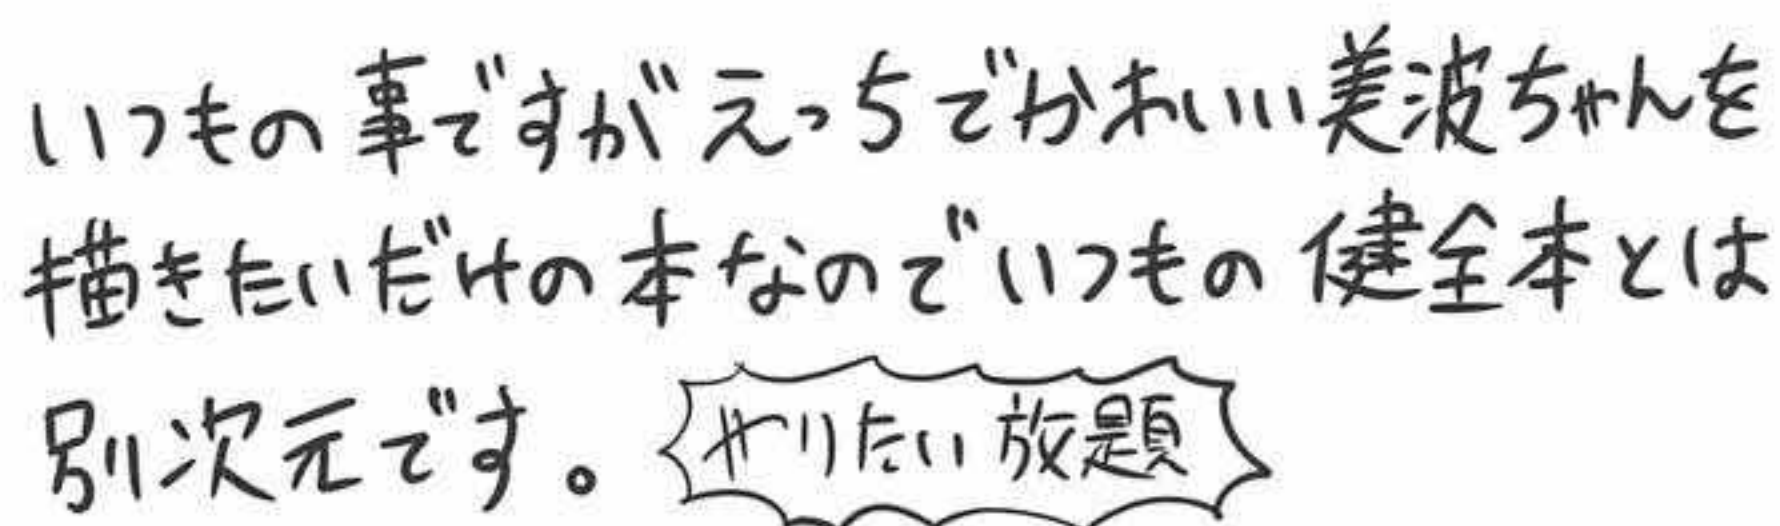 いつもの事ですがえっちでかわいい美波ちゃんを
描きたいだけの本なのでいつもの健全本とは
別次元です。
やりたい放題